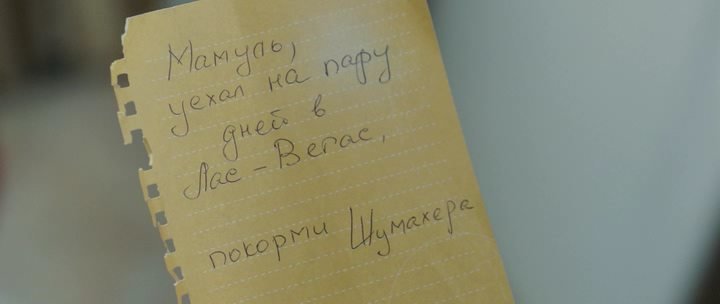 Мамуль,
уехал на пару
дней в
Лас-Вегас,
покорми Шумахера